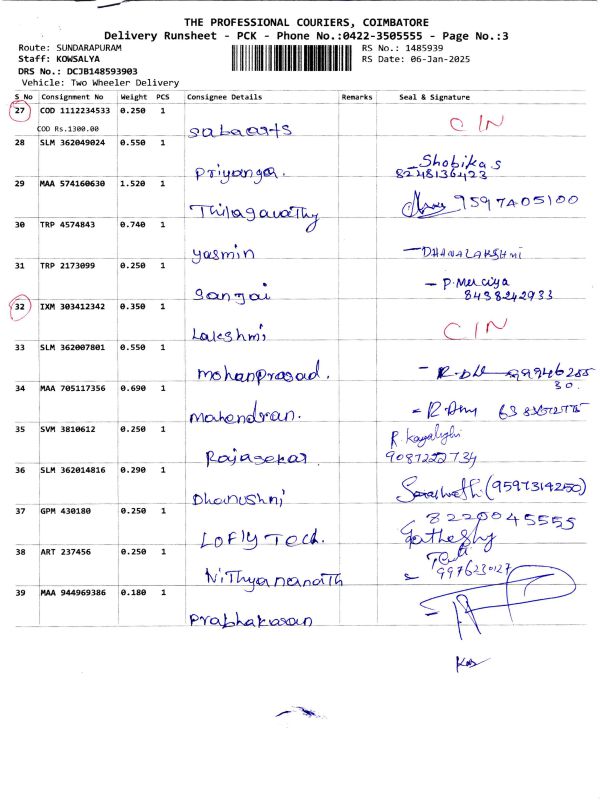 THE PROFESSIONAL COURIERS, COIMBATORE
Delivery Runsheet - PCK - Phone No.:0422-3505555 - Page No.:3
Route: SUNDARAPURAM RS No.: 1485939
Staff: KOWSALYA RS Date: 06-Jan-2025
DRS No.: DCJB148593903
Vehicle: Two Wheeler Delivery
S No Consignment No Weight PCS Consignee Details Remarks Seal & Signature
27 COD 1112234533 0.250 1 C IN
COD Rs.1300.00 sabaarts
28 SLM 362049024 0.550 1 Shobika s
Priyanga. 8248136423
29 MAA 574160630 1.520 1 9597405100
Thilagavathy
30 TRP 4574843 0.740 1
yasmin - DHANALAKSHMI
31 TRP 2173099 0.250 1 - P. Merciya
Sanjai 8438242933
32 IXM 303412342 0.350 1 C IN
Lakshmi
33 SLM 362007801 0.550 1
mohanprasad. 30.
34 MAA 705117356 0.690 1
mahendran.
35 SVM 3810612 0.250 1
Rajasekar. 9087222734
36 SLM 362014816 0.290 1 (9597314250)
Dhanushni
37 GPM 430180 0.250 1 8220045555
LOFLY Tech.
38 ART 237456 0.250 1
Nithyananath 9976230127
39 MAA 944969386 0.180 1
Prabhakaran